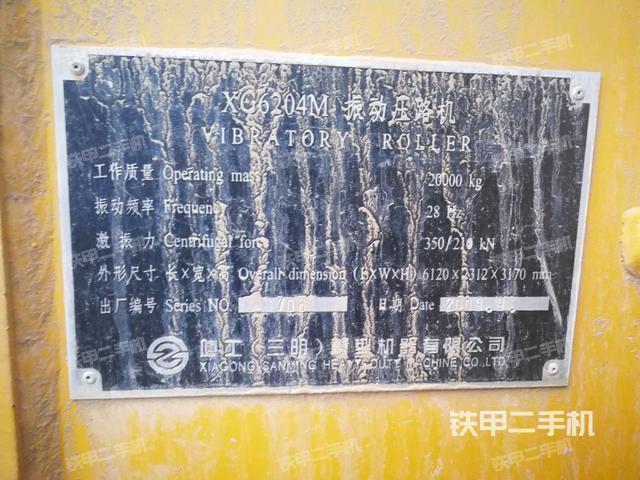 XG6204M 振动压路机
VIBRATORY ROLLER
工作质量 Operating mass 20000 kg
振动频率 Frequency 28 Hz
激振力 Centrifugal force 350/210 kN
外形尺寸:长×宽×高 Overall dimension (L×W×H) 6120×2312×3170 mm
出厂编号 Series NO. 日期 Date 2009.9.
厦工(三明)重型机器有限公司
XIAGONG SANMING HEAVY DUTY MACHINE CO.,LTD.
铁甲二手机